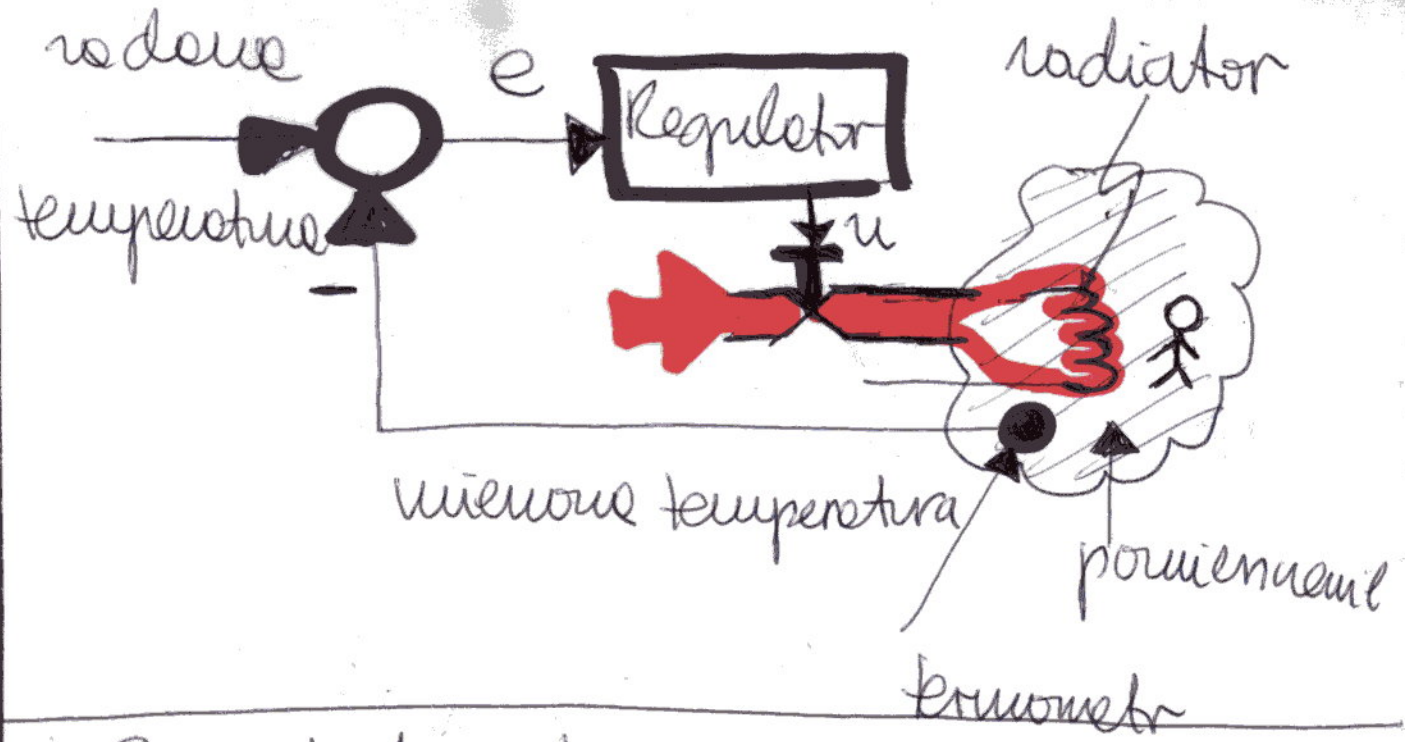 zadana
temperatura
e
Regulator
radiator
u
-
mierzona temperatura
pomieszczenie
termometr